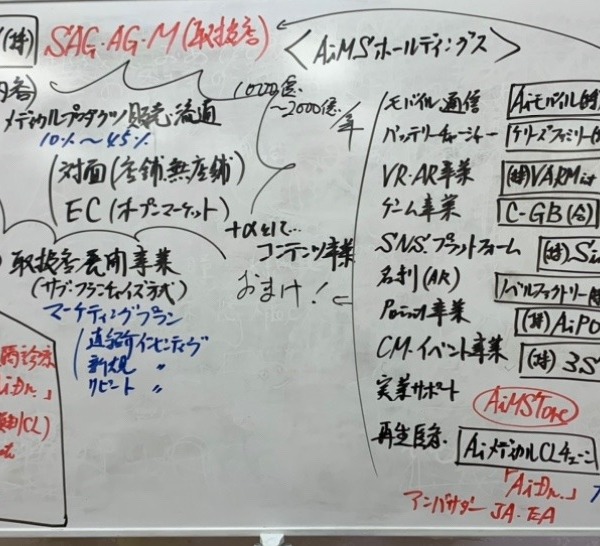 (株) SAG・AG・M(取扱店)
＜AiMSホールディングス＞
内容)
メディカルプロダクツ販売流通
10%～45%
1000億
～2000億/年
対面(店舗無店舗)
EC(オープンマーケット)
+αとして…
コンテンツ事業
おまけ!
取扱店展開事業
(サブ・フランチャイズ方式)
マーケティングプラン
直紹介インセンティヴ
新規 〃
リピート 〃
モバイル通信 Aiモバイル(株
バッテリーチャージャー ケリーズファミリー(
VR・AR事業 (株)VARMist
ゲーム事業 C-GB(合)
SNS.プラットフォーム (株)Si
名刺(AR) ノベルファクトリー(株
Point事業 (株)AiPO
CM・イベント事業 (株)3S
実業サポート AiMSTore
再生医療 AiメディカルCLチェーン
「AiDr.」
アンバサダー JA・EA
診療
iDr.」
CL)